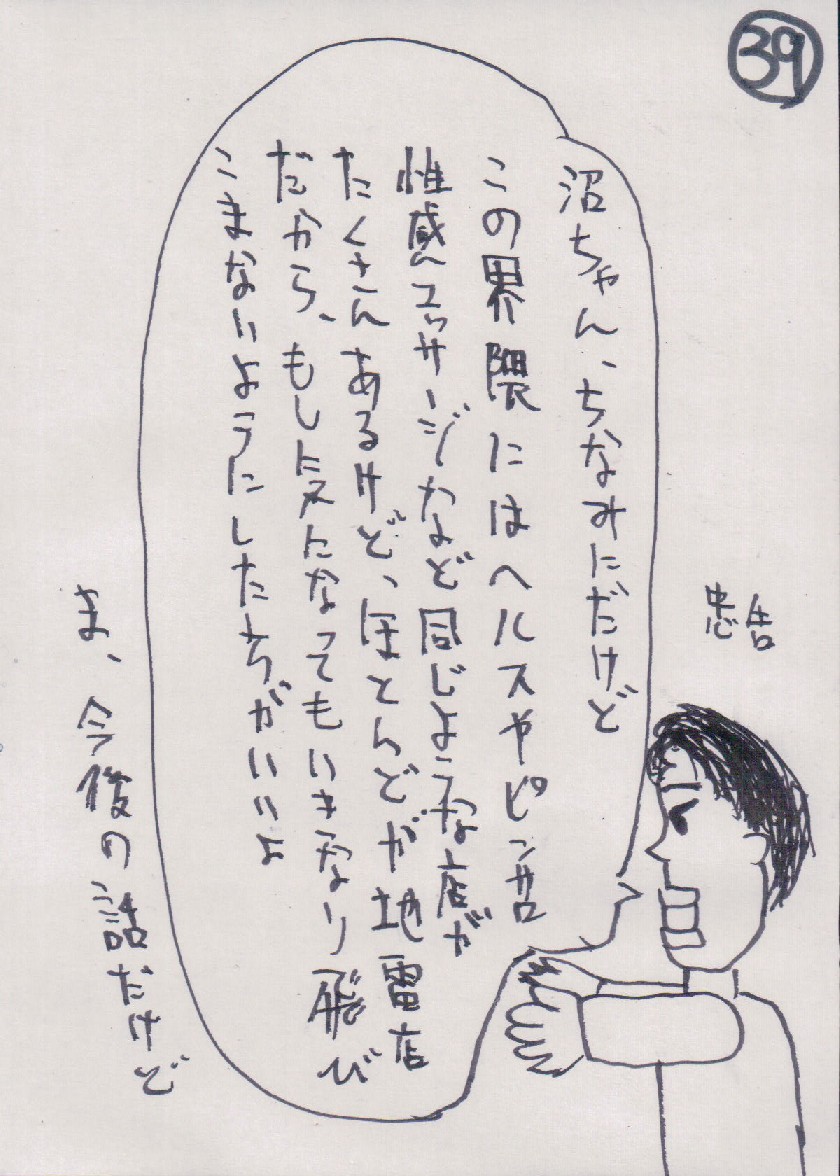 39
沼ちゃん、ちなみにだけど
この界隈にはヘルスやピンサロ
性感マッサージなど同じような店が
たくさんあるけど、ほとんどが地雷店
だから、もし気になってもいきなり飛び
こまないようにしたほうがいいよ
忠告
ま、今後の話だけど